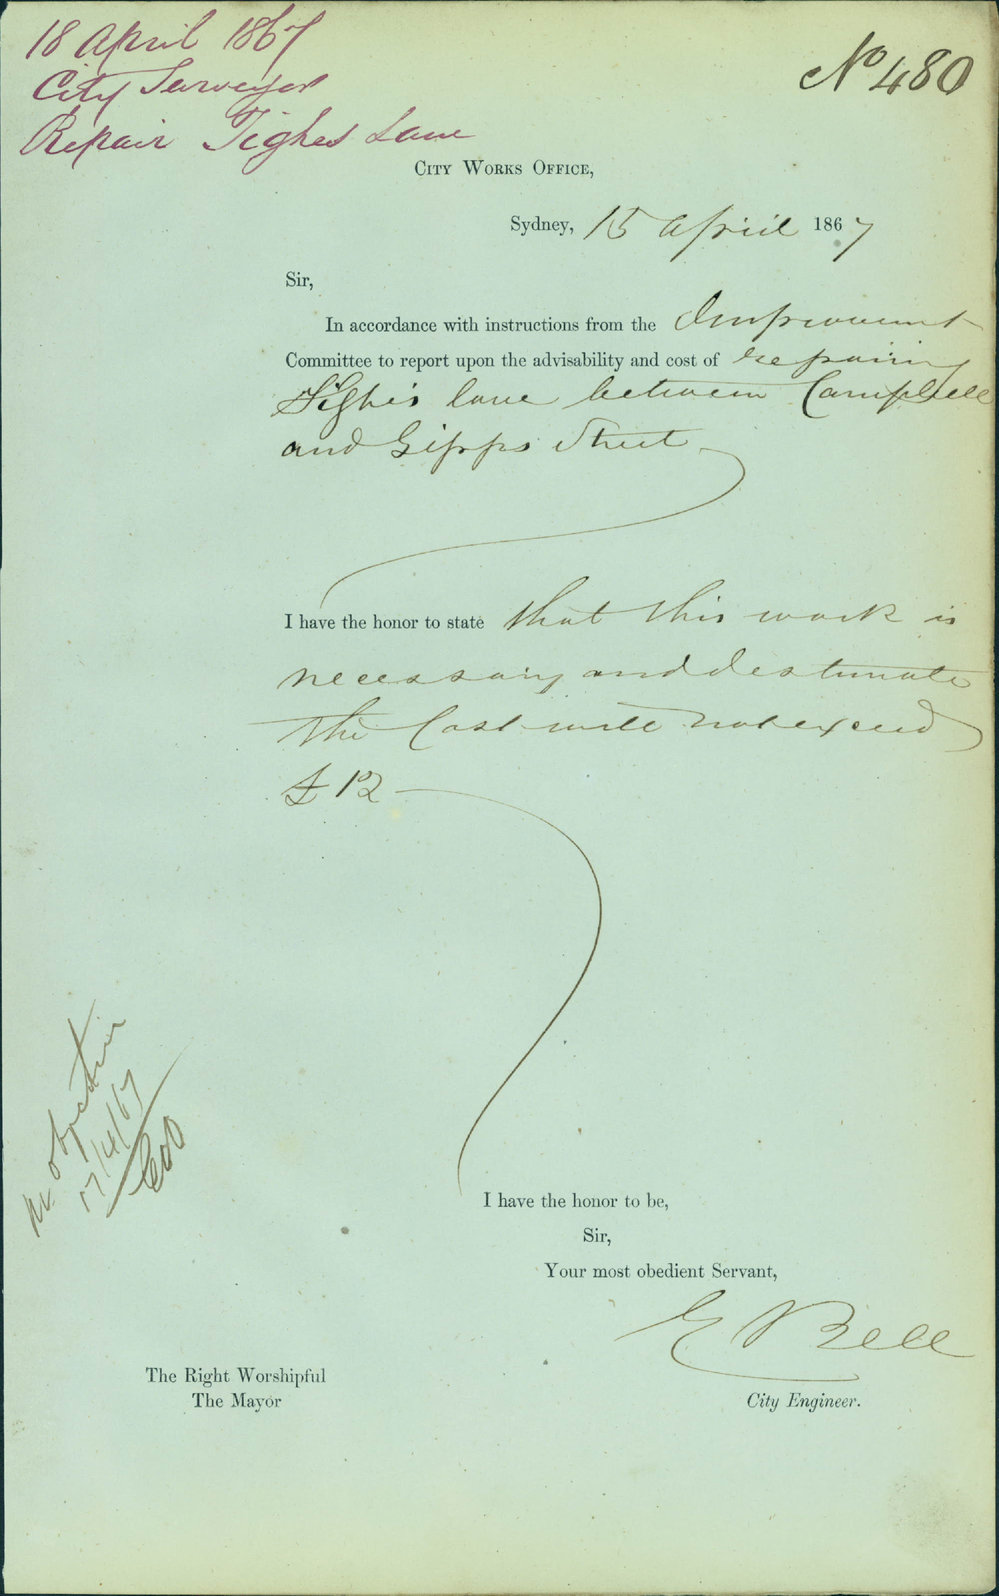 18 April 1867
City Surveyor
Repair Tighes Lane
No 480
City Works Office,
Sydney, 15 April 1867
Sir,
In accordance with instructions from the Improvement
Committee to report upon the advisability and cost of repairing
Tighe's lane between Campbell
and Gipps Street
I have the honor to state that this work is
necessary and I estimate
the Cost will not exceed
£12
I have the honor to be,
Sir,
Your most obedient Servant,
E Bell
City Engineer.
The Right Worshipful
The Mayor
no objection
17/4/67